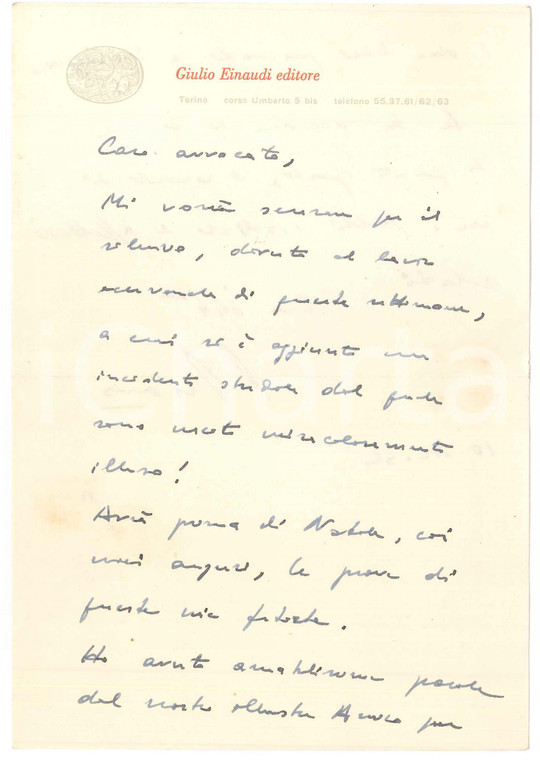 Giulio Einaudi editore
Torino corso Umberto 5 bis telefono 55.37.61/62/63
Caro avvocato,
Mi vorrà scusare per il
silenzio, dovuto al lavoro
eccezionale di queste settimane,
a cui si è aggiunto un
incidente stradale dal quale
sono uscito miracolosamente
illeso!
Avrà prima di Natale, coi
miei auguri, le prove di
queste mie
Ho avuto amabilissime parole
dal nostro illustre Amico per